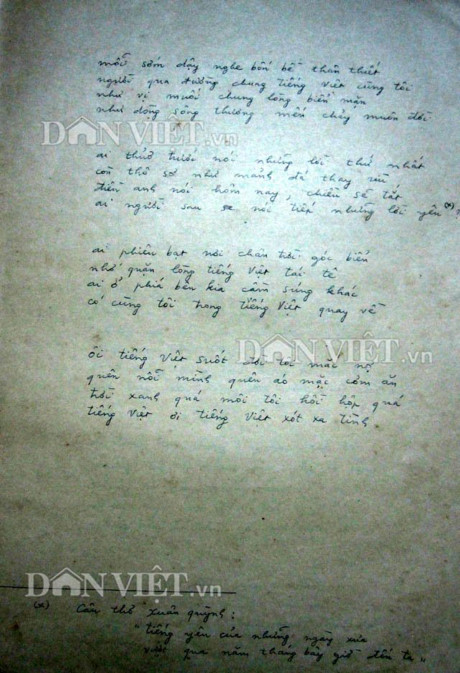 mỗi sớm dậy nghe bốn bề thân thiết
người qua đường chung tiếng Việt cùng tôi
như vị muối chung lòng biển mặn
như dòng sông thương mến chảy muôn đời
DÂN VIỆT.vn
ai thuở trước nói những lời thứ nhất
còn thô sơ như mảnh đá thay rìu
điều anh nói hôm nay, chiều sẽ tắt
ai người sau sẽ nói tiếp những lời yêu (*)?
ai phiêu bạt nơi chân trời góc biển
nhớ quặn lòng tiếng Việt tái tê
ai ở phía bên kia cầm súng khác
có cùng tôi trong tiếng Việt quay về
DÂN VIỆT.vn
ôi tiếng Việt suốt đời tôi mắc nợ
quên nỗi mình quên áo mặc cơm ăn
trời xanh quá môi tôi hồi hộp quá
tiếng Việt ơi tiếng Việt xót xa tình
DÂN VIỆT.vn
(*) Câu thơ Xuân Quỳnh:
"tiếng yêu của những ngày xưa
vượt qua năm tháng bây giờ đến ta"